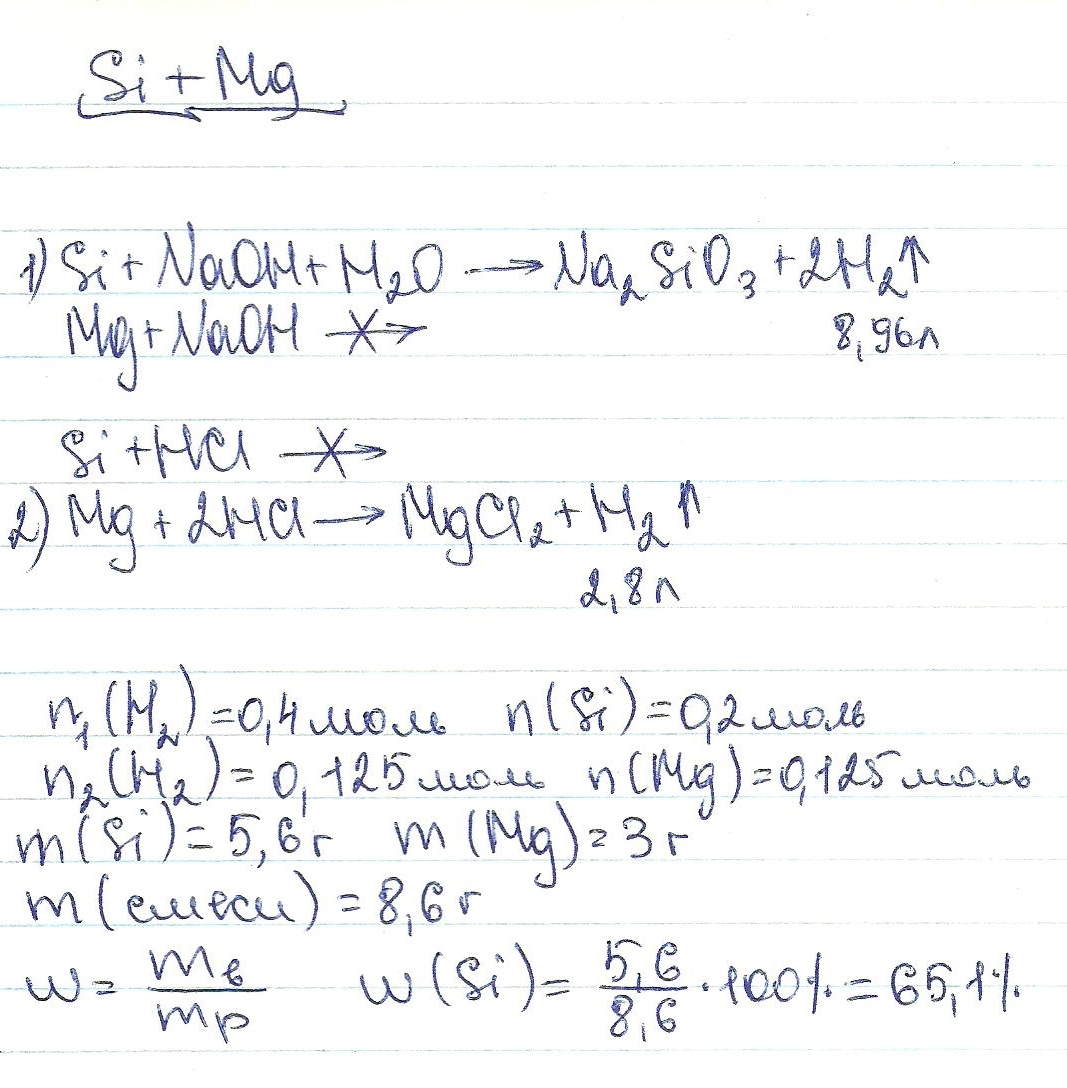 Si + Mg
1) Si + NaOH + H₂O → Na₂SiO₃ + 2H₂↑
Mg + NaOH ↛ 8,96л
Si + HCl ↛
2) Mg + 2HCl → MgCl₂ + H₂↑
2,8л
n₁(H₂) = 0,4 моль n(Si) = 0,2 моль
n₂(H₂) = 0,125 моль n(Mg) = 0,125 моль
m(Si) = 5,6 г m(Mg) = 3 г
m(смеси) = 8,6 г
w = mв/mр w(Si) = 5,6/8,6 · 100% = 65,1%